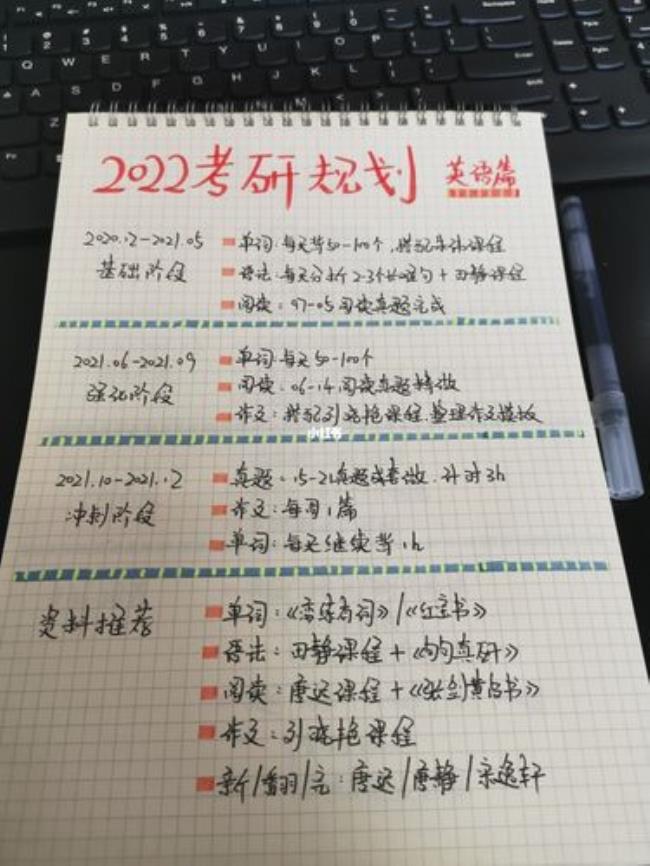 2022考研规划 英语篇
2020.12-2021.05 基础阶段
单词:每天背50-100个,搭配朱伟课程
语法:每天分析2-3个长难句+田静课程
阅读:97-05阅读真题完成
2021.06-2021.09 强化阶段
单词:每天50-100个
阅读:06-14阅读真题精做
作文:搭配刘晓艳课程,整理作文模板
小红书
2021.10-2021.12 冲刺阶段
真题:15-21真题成套做,计时3h
作文:每周1篇
单词:每天继续背1h
资料推荐
单词:《恋练有词》/《红宝书》
语法:田静课程+《句句真研》
阅读:唐迟课程+《张剑黄皮书》
作文:刘晓艳课程
新/翻/完:唐迟/唐静/宋逸轩